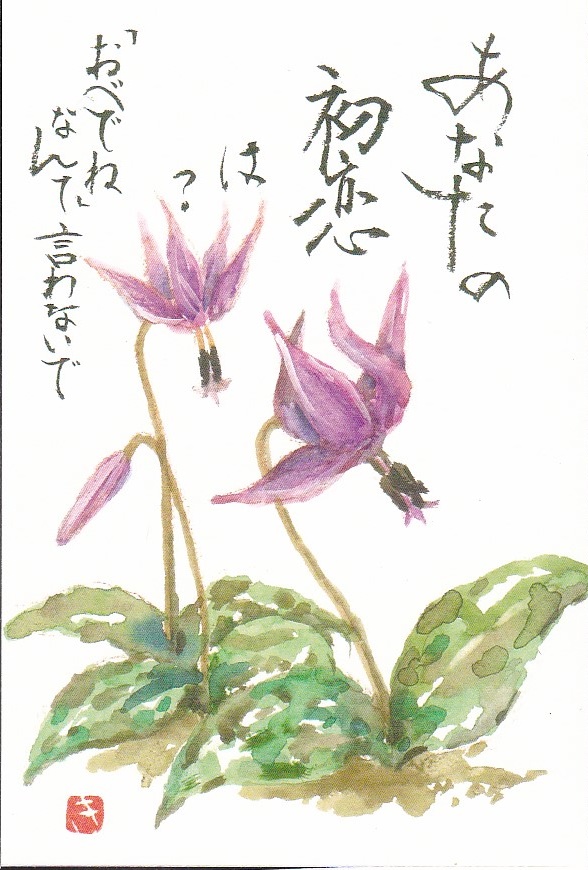 あなたの
初恋
は
?
「おべでね」
なんて言わないで
き